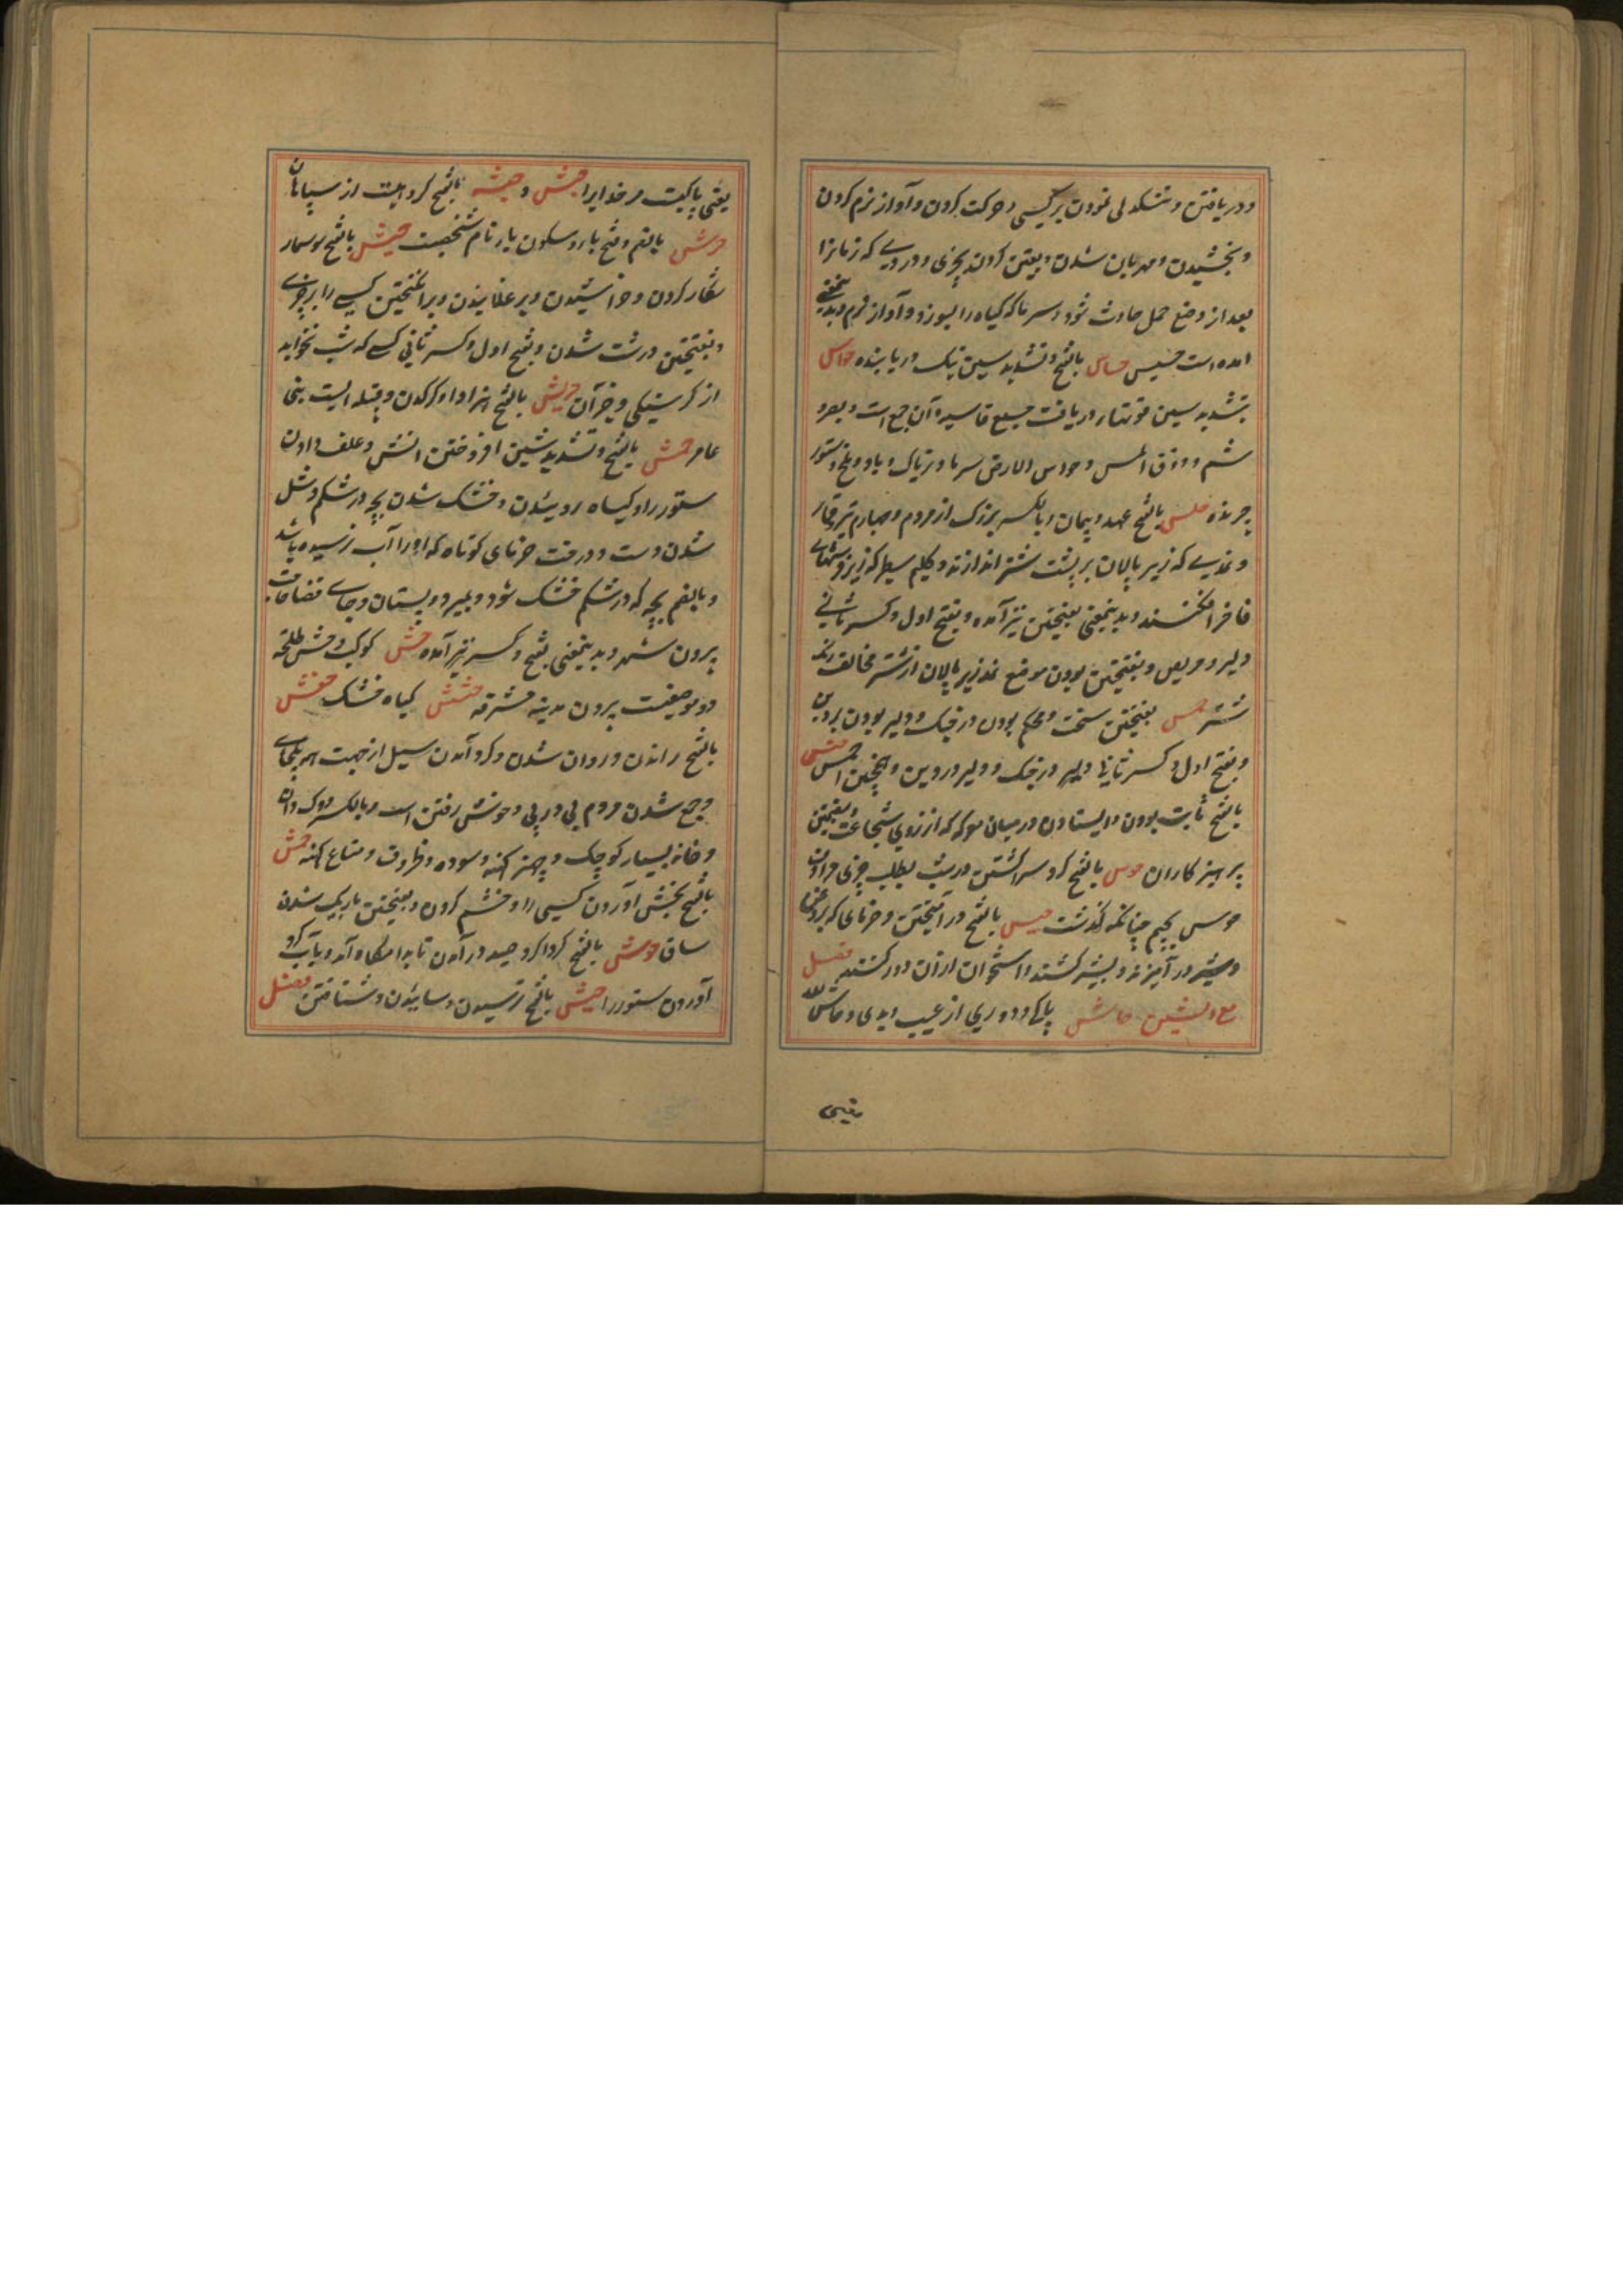 و دریافتن و تنگدلی نمودن بر کسی و حرکت کردن و آواز نرم کردن
و بخشیدن و مهربان شدن و یقین کردن بچیزی و دردیے که زنانرا
بعد از وضع حمل حادث شود و سرما که کیاه را بسوزد و آواز نرم و بدینمعنے
آمده است حسیس حساس بالفتح و تشدید سین نیک دریابنده حواس
بتشدید سین قوتهاء دریافت جمع حاسه و آن جمع است و بصر و
شم و ذوق و لمس و حواس الارض سرما و ژاله و باد و ملخ و ستور
چرنده حلس بالفتح عهد و پیمان و بالکسر بزرک از مردم و چهارم تیر قمار
و نمدیے که زیر پالان بر پشت شتر اندازند و کلیم سطبر که زیر فرشهاے
فاخر افکنند و بدینمعنی بفتحتین نیز آمده و بفتح اول و کسر ثانے
دلیر و حریص و بفتحتین بودن موضع نمد زیر پالان از شتر مخالف رنک
شتر حمس بفتحتین سخت و محکم بودن در جنک و دلیر بودن در دین
و بفتح اول و کسر ثانی دلیر در جنک و دلیر در دین و همچنین احمس حمس
بالفتح ثابت بودن و ایستادن در میان معرکه از روی شجاعت و بفتحتین
پرهیزکاران حوس بالفتح کرد سرا کشتن در شب بطلب چیزی و
جوس بجیم چنانکه گذشت حیس بالفتح در آمیختن و خرمای که بروغن
و پنیر در آمیزند و بیشتر کشند و استخوان ازان دور کنند فصل
مع الشین حاش پاکے و دوری از عیب و بدی و حاش لله
یعنی
یعنی پاکیست مر خدایرا حبش و حبشه بالفتح کروهیست از سیاهان
حبرش بالضم و فتح با و سکون یا نام شخصیست حرش بالفتح سوسمار
شکار کردن و خراشیدن و برغلانیدن و برانگیختن کسے را بر چیزے
و بفتحتین درشت شدن و بفتح اول و کسر ثانی کسے که شب نخوابد
از کرسنگی و جز آن حریش بالفتح هزارپا و کرکدن و قبیله ایست بنی
عامر حش بالفتح و تشدید شین افروختن آتش و علف دادن
ستور را و کیاه رویدن و خشک شدن بچه در شکم و شل
شدن دست و درخت خرمای کوتاه که او را آب نرسیده باشد
و بالضم بچه که در شکم خشک شود و بمیرد و بستان و جاے قضا حاجت
برون شهر و بدینمعنی بفتح و کسر نیز آمده حش کوکب و حش طلحه
دو موضعیست برون مدینه مشرفه حشیش کیاه خشک حفش
بالفتح راندن و روان شدن و کرد آمدن سیل از جهت هر یکجاے
و جمع شدن مردم پی در پی و خوش رفتن اسب و بالکسر دوک دان
و خانه بسیار کوچک و چیز کهنه و سوده و ظروف و متاع کهنه حمش
بالفتح بخشم آوردن کسی را و خشم کردن و بفتحتین باریک شدن
ساق حوش بالفتح کردا کرد صید در آمدن تا بدامکاه آمد و یا کرد
آوردن ستور را حیش بالفتح ترسیدن و شتافتن فصل